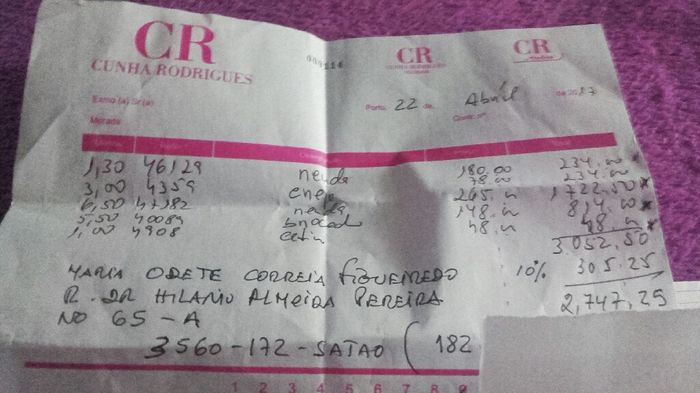 CR
CUNHA RODRIGUES
CR
CUNHA RODRIGUES
CR
Exmo (a) Sr.(a)
Morada
Porto, 22 de Abril de 2017
Contr. nº
1,30 46129 180.00 234.00
3,00 4359 78.00 234.00
6,50 47182 265.00 1722.50
5,50 40089 148.00 814.00
1,00 4908 cetim 48.00 48.00
3.052,50
10% 305.25
2,747,25
MARIA ODETE CORREIA FIGUEIREDO
R. DR HILARIO ALMEIRA PEREIRA
NO 65-A
3560-172-SATAO (182
1 2 3 4 5 6 7 8 9